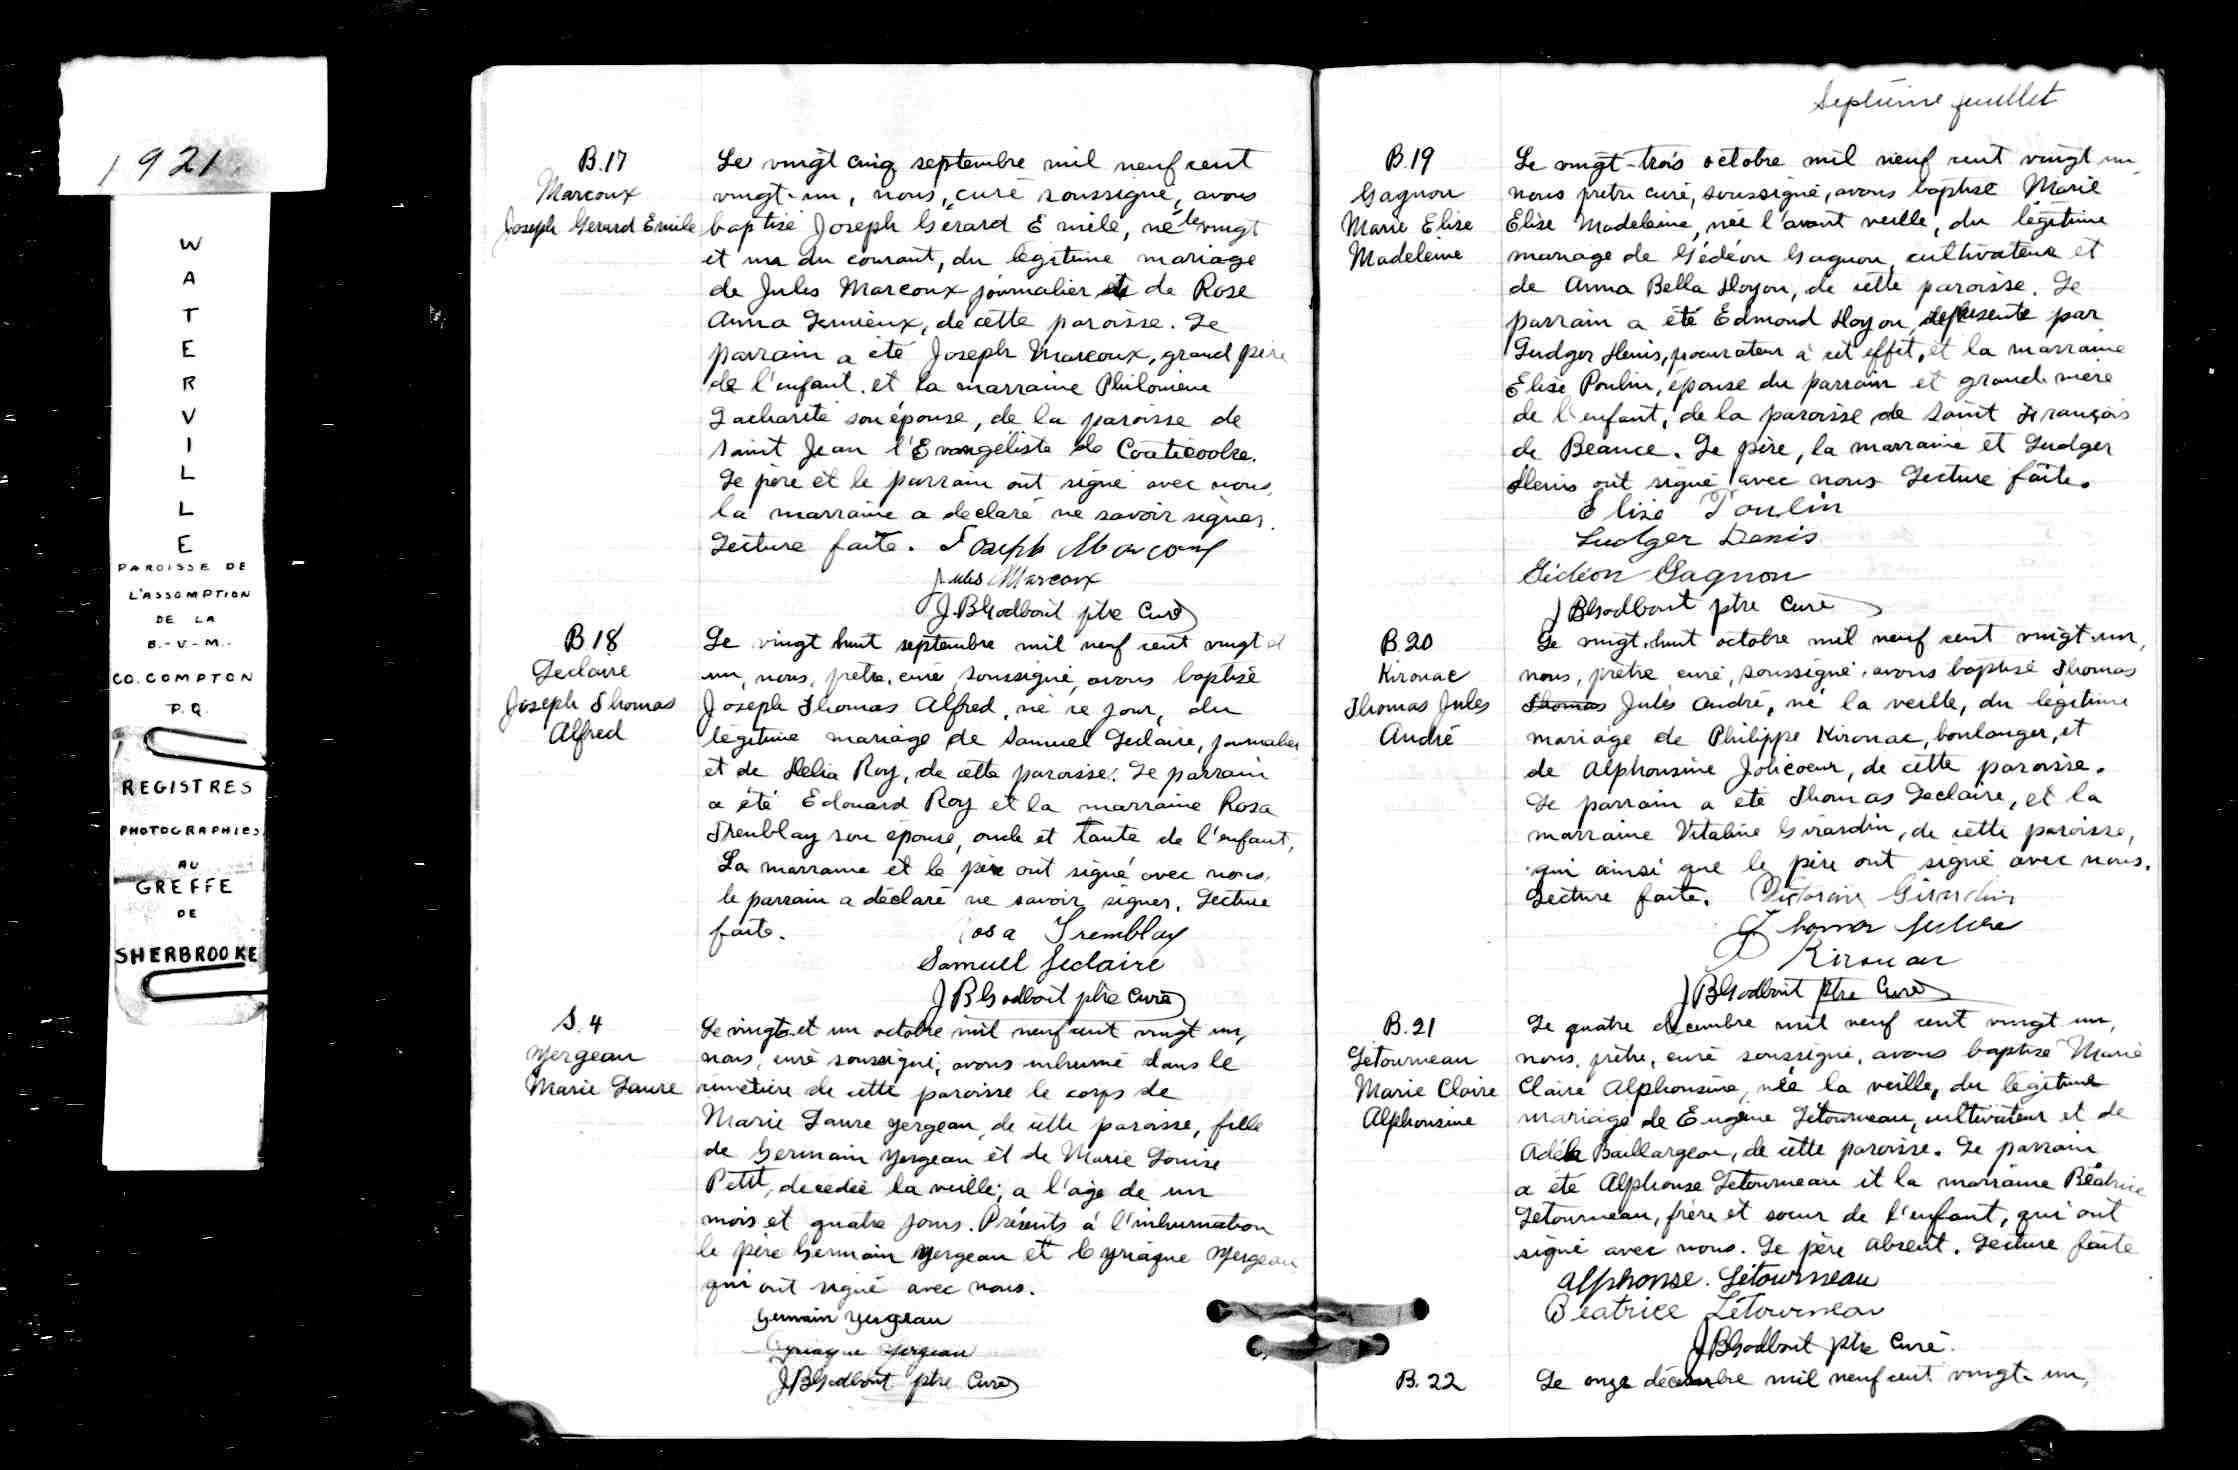 1921
W
A
T
E
R
V
I
L
L
E
PAROISSE DE
L'ASSOMPTION
DE LA
B.-V-M.-
CO. COMPTON
P.Q.
REGISTRES
PHOTOGRAPHIES
AU
GREFFE
DE
SHERBROOKE
B.17
Marcoux
Joseph Gerard Emile
Le vingt cinq septembre mil neuf cent
vingt-un, nous, curé soussigné, avons
baptisé Joseph Gérard Emile, né le vingt
et un du courant, du légitime mariage
de Jules Marcoux journalier et de Rose
Anna Lemieux, de cette paroisse. Le
parrain a été Joseph Marcoux, grand père
de l'enfant et la marraine Philomène
Lacharité son épouse, de la paroisse de
Saint Jean l'Evangéliste de Coaticooke.
Le père et le parrain ont signé avec nous,
la marraine a déclaré ne savoir signer.
Lecture faite. Joseph Marcoux
Jules Marcoux
J.B.Godbout ptre Curé
B.18
Leclaire
Joseph Thomas
Alfred
Le vingt huit septembre mil neuf cent vingt et
un, nous, prêtre, curé soussigné, avons baptisé
Joseph Thomas Alfred, né ce jour, du
légitime mariage de Samuel Leclaire, journalier
et de Delia Roy, de cette paroisse. Le parrain
a été Edouard Roy et la marraine Rosa
Tremblay son épouse, oncle et tante de l'enfant,
La marraine et le père ont signé avec nous,
le parrain a déclaré ne savoir signer. Lecture
faite. Rosa Tremblay
Samuel Leclaire
J B Godbout ptre Curé
S.4
Yergeau
Marie Laure
Le vingt et un octobre mil neuf cent vingt un,
nous, curé soussigné, avons inhumé dans le
cimetière de cette paroisse le corps de
Marie Laure Yergeau, de cette paroisse, fille
de Germain Yergeau et de Marie Louise
Petit, décédée la veille, a l'age de un
mois et quatre jours. Présents à l'inhumation
le père Germain Yergeau et Cyriaque Yergeau
qui ont signé avec nous.
Germain Yergeau
Cyriaque Yergeau
J B Godbout ptre Curé
Septième feuillet
B.19
Gagnon
Marie Elise
Madeleine
Le vingt-trois octobre mil neuf cent vingt un,
nous prêtre curé, soussigné, avons baptisé Marie
Elise Madeleine, née l'avant veille, du légitime
mariage de Gédéon Gagnon, cultivateur et
de Anna Bella Doyon, de cette paroisse. Le
parrain a été Edmond Doyon, représenté par
Ludger Denis, procurateur à cet effet, et la marraine
Elise Poulin, épouse du parrain et grande mère
de l'enfant, de la paroisse de Saint François
de Beauce. Le père, la marraine et Ludger
Denis ont signé avec nous. Lecture faite.
Elise Poulin
Ludger Denis
Gédéon Gagnon
J B Godbout ptre Curé
B.20
Kirouac
Thomas Jules
André
Le vingt-huit octobre mil neuf cent vingt-un,
nous, prêtre curé, soussigné, avons baptisé Thomas
Thomas Jules André, né la veille, du légitime
mariage de Philippe Kirouac, boulanger, et
de Alphonsine Jolicoeur, de cette paroisse.
Le parrain a été Thomas Leclaire, et la
marraine Vitaline Girardin, de cette paroisse,
qui ainsi que le père ont signé avec nous.
Lecture faite. Girardin
Thomas Leclere
Kirouac
J B Godbout Ptre Curé
B.21
Létourneau
Marie Claire
Alphonsine
Le quatre décembre mil neuf cent vingt un,
nous, prêtre, curé soussigné, avons baptisé Marie
Claire Alphonsine, née la veille, du légitime
mariage de Eugène Létourneau, cultivateur et de
Adéla Baillargeon, de cette paroisse. Le parrain
a été Alphonse Létourneau et la marraine Béatrice
Létourneau, frère et soeur de l'enfant, qui ont
signé avec nous. Le père absent. Lecture faite
Alphonse. Létourneau
Béatrice Létourneau
J B Godbout ptre Curé.
B.22
Le onze décembre mil neuf cent vingt-un,